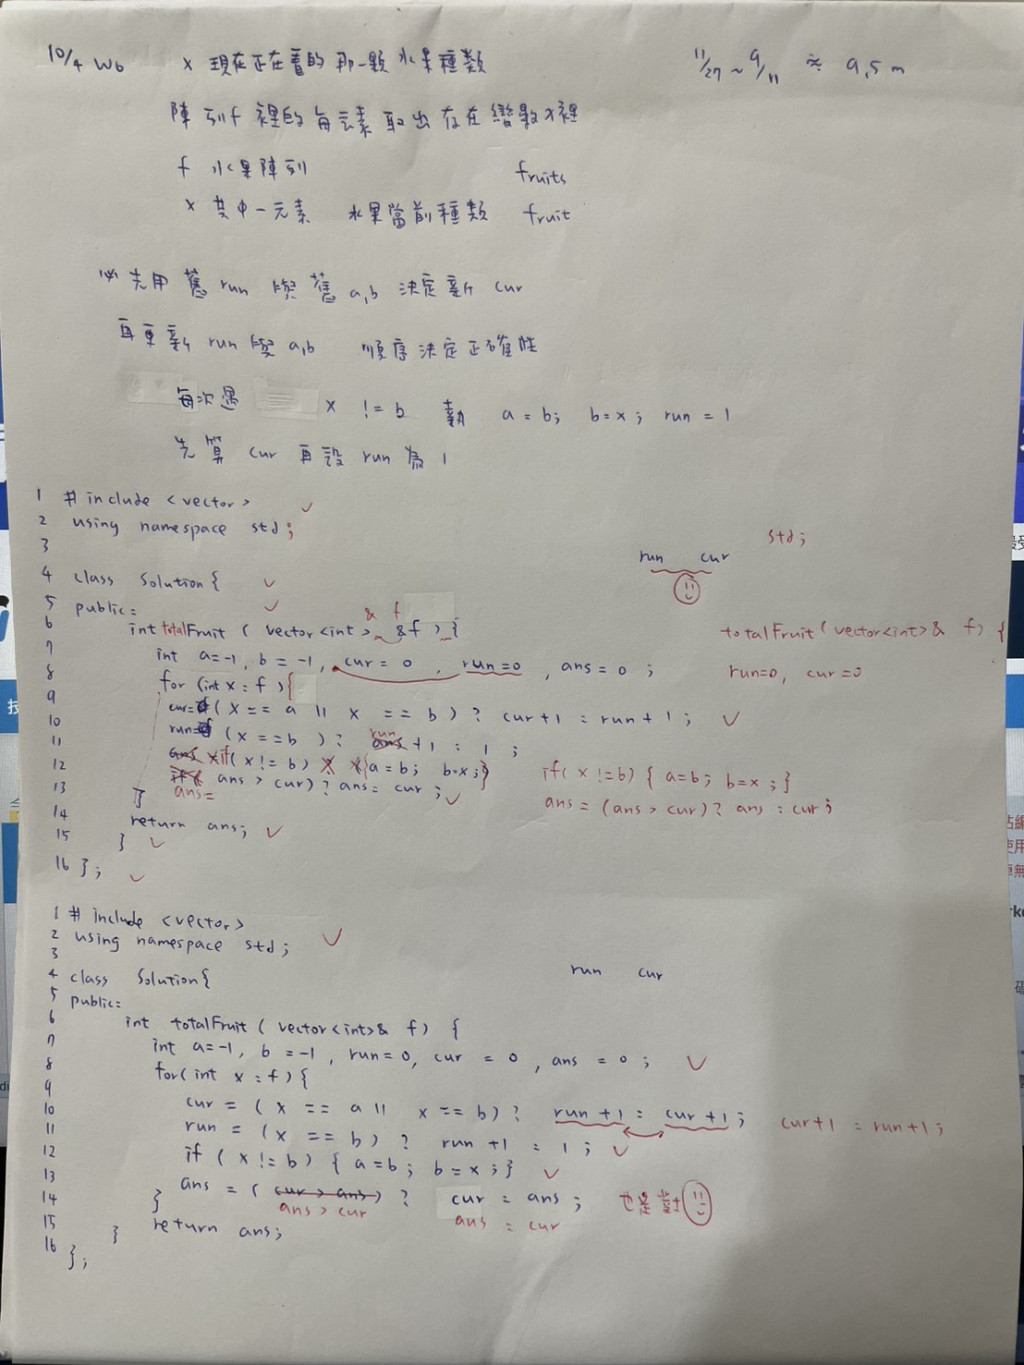 10/4 W6 x 現在正在看的那一顆水果種類 11/27 ~ 9/11 ≈ 9.5 m
陣列f 裡的每元素取出存在變數x裡
f 水果陣列 fruits
x 其中一元素 水果當前種類 fruit
必先用舊 run 與舊 a,b 決定新 cur
再更新 run 與 a,b 順序決定正確性
每次遇 x != b 執 a = b; b=x; run = 1
先算 cur 再設 run 為 1
1 #include <vector>
2 using namespace std; std;
3 run cur
4 class Solution{
5 public:
& f
6 int totalFruit ( vector<int> &f ) { totalFruit(vector<int>& f) {
7 int a=-1, b = -1, cur = 0, run=0, ans = 0; run=0, cur=0
8 for (int x : f ){
9 cur= (x == a || x == b) ? cur+1 : run+1;
10 run= (x ==b )? ans run +1 : 1 ;
11 ans if( x != b) {a = b; b=x;} if( x !=b) { a=b; b=x ;}
12 if( ans > cur) ? ans = cur ; ans = (ans > cur)? ans : cur;
13 } ans=
14 return ans;
15 }
16 };
1 #include <vector>
2 using namespace std;
3
4 class Solution{ run cur
5 public:
6 int totalFruit ( vector<int>& f) {
7 int a=-1, b =-1, run=0, cur = 0, ans = 0;
8 for( int x : f){
9
10 cur = ( x == a || x == b) ? run +1 : cur +1; cur+1 = run+1;
11 run = (x == b ) ? run +1 : 1 ;
12 if ( x != b) { a =b; b = x ;}
13 ans = ( cur > ans ) ? cur = ans ; 也是對
14 } ans > cur ans : cur
15 } return ans;
16 };